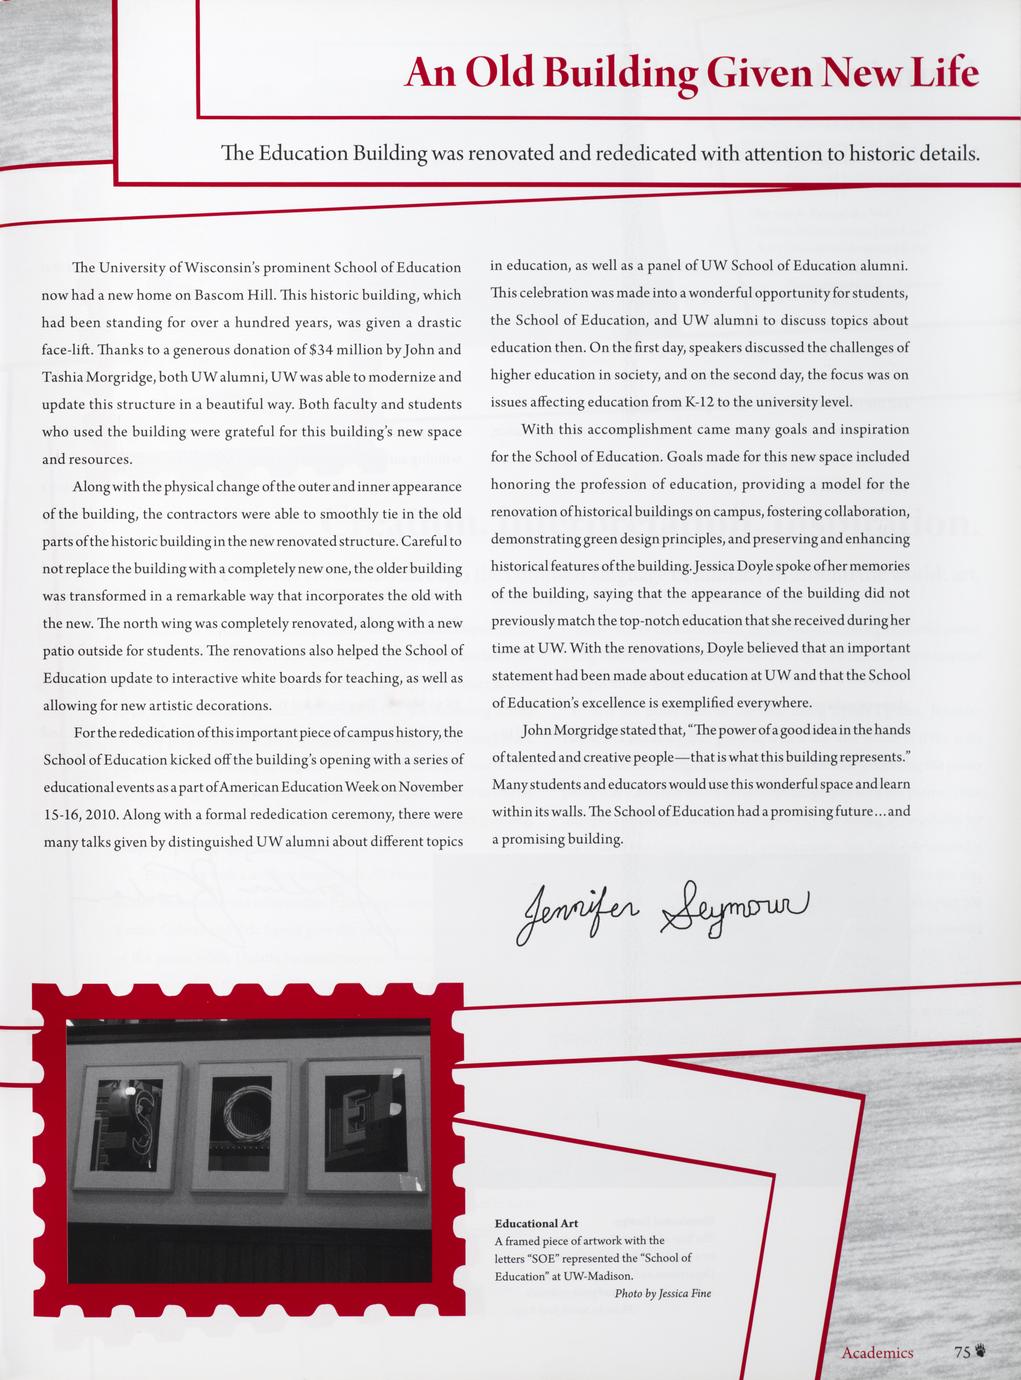 An Old Building Given New Life
The Education Building was renovated and rededicated with attention to historic details.
The University of Wisconsin's prominent School of Education
now had a new home on Bascom Hill. This historic building, which
had been standing for over a hundred years, was given a drastic
face-lift. Thanks to a generous donation of $34 million by John and
Tashia Morgridge, both UW alumni, UW was able to modernize and
update this structure in a beautiful way. Both faculty and students
who used the building were grateful for this building's new space
and resources.
Along with the physical change of the outer and inner appearance
of the building, the contractors were able to smoothly tie in the old
parts of the historic building in the new renovated structure. Careful to
not replace the building with a completely new one, the older building
was transformed in a remarkable way that incorporates the old with
the new. The north wing was completely renovated, along with a new
patio outside for students. The renovations also helped the School of
Education update to interactive white boards for teaching, as well as
allowing for new artistic decorations.
For the rededication of this important piece of campus history, the
School of Education kicked off the building's opening with a series of
educational events as a part of American Education Week on November
15-16, 2010. Along with a formal rededication ceremony, there were
many talks given by distinguished UW alumni about different topics
in education, as well as a panel of UW School of Education alumni.
This celebration was made into a wonderful opportunity for students,
the School of Education, and UW alumni to discuss topics about
education then. On the first day, speakers discussed the challenges of
higher education in society, and on the second day, the focus was on
issues affecting education from K-12 to the university level.
With this accomplishment came many goals and inspiration
for the School of Education. Goals made for this new space included
honoring the profession of education, providing a model for the
renovation of historical buildings on campus, fostering collaboration,
demonstrating green design principles, and preserving and enhancing
historical features of the building. Jessica Doyle spoke of her memories
of the building, saying that the appearance of the building did not
previously match the top-notch education that she received during her
time at UW. With the renovations, Doyle believed that an important
statement had been made about education at UW and that the School
of Education's excellence is exemplified everywhere.
John Morgridge stated that, “The power of a good idea in the hands
of talented and creative people—that is what this building represents.”
Many students and educators would use this wonderful space and learn
within its walls. The School of Education had a promising future…and
a promising building.
Jennifer Seymour
S O E
Educational Art
A framed piece of artwork with the
letters “SOE” represented the “School of
Education” at UW-Madison.
Photo by Jessica Fine
Academics 75